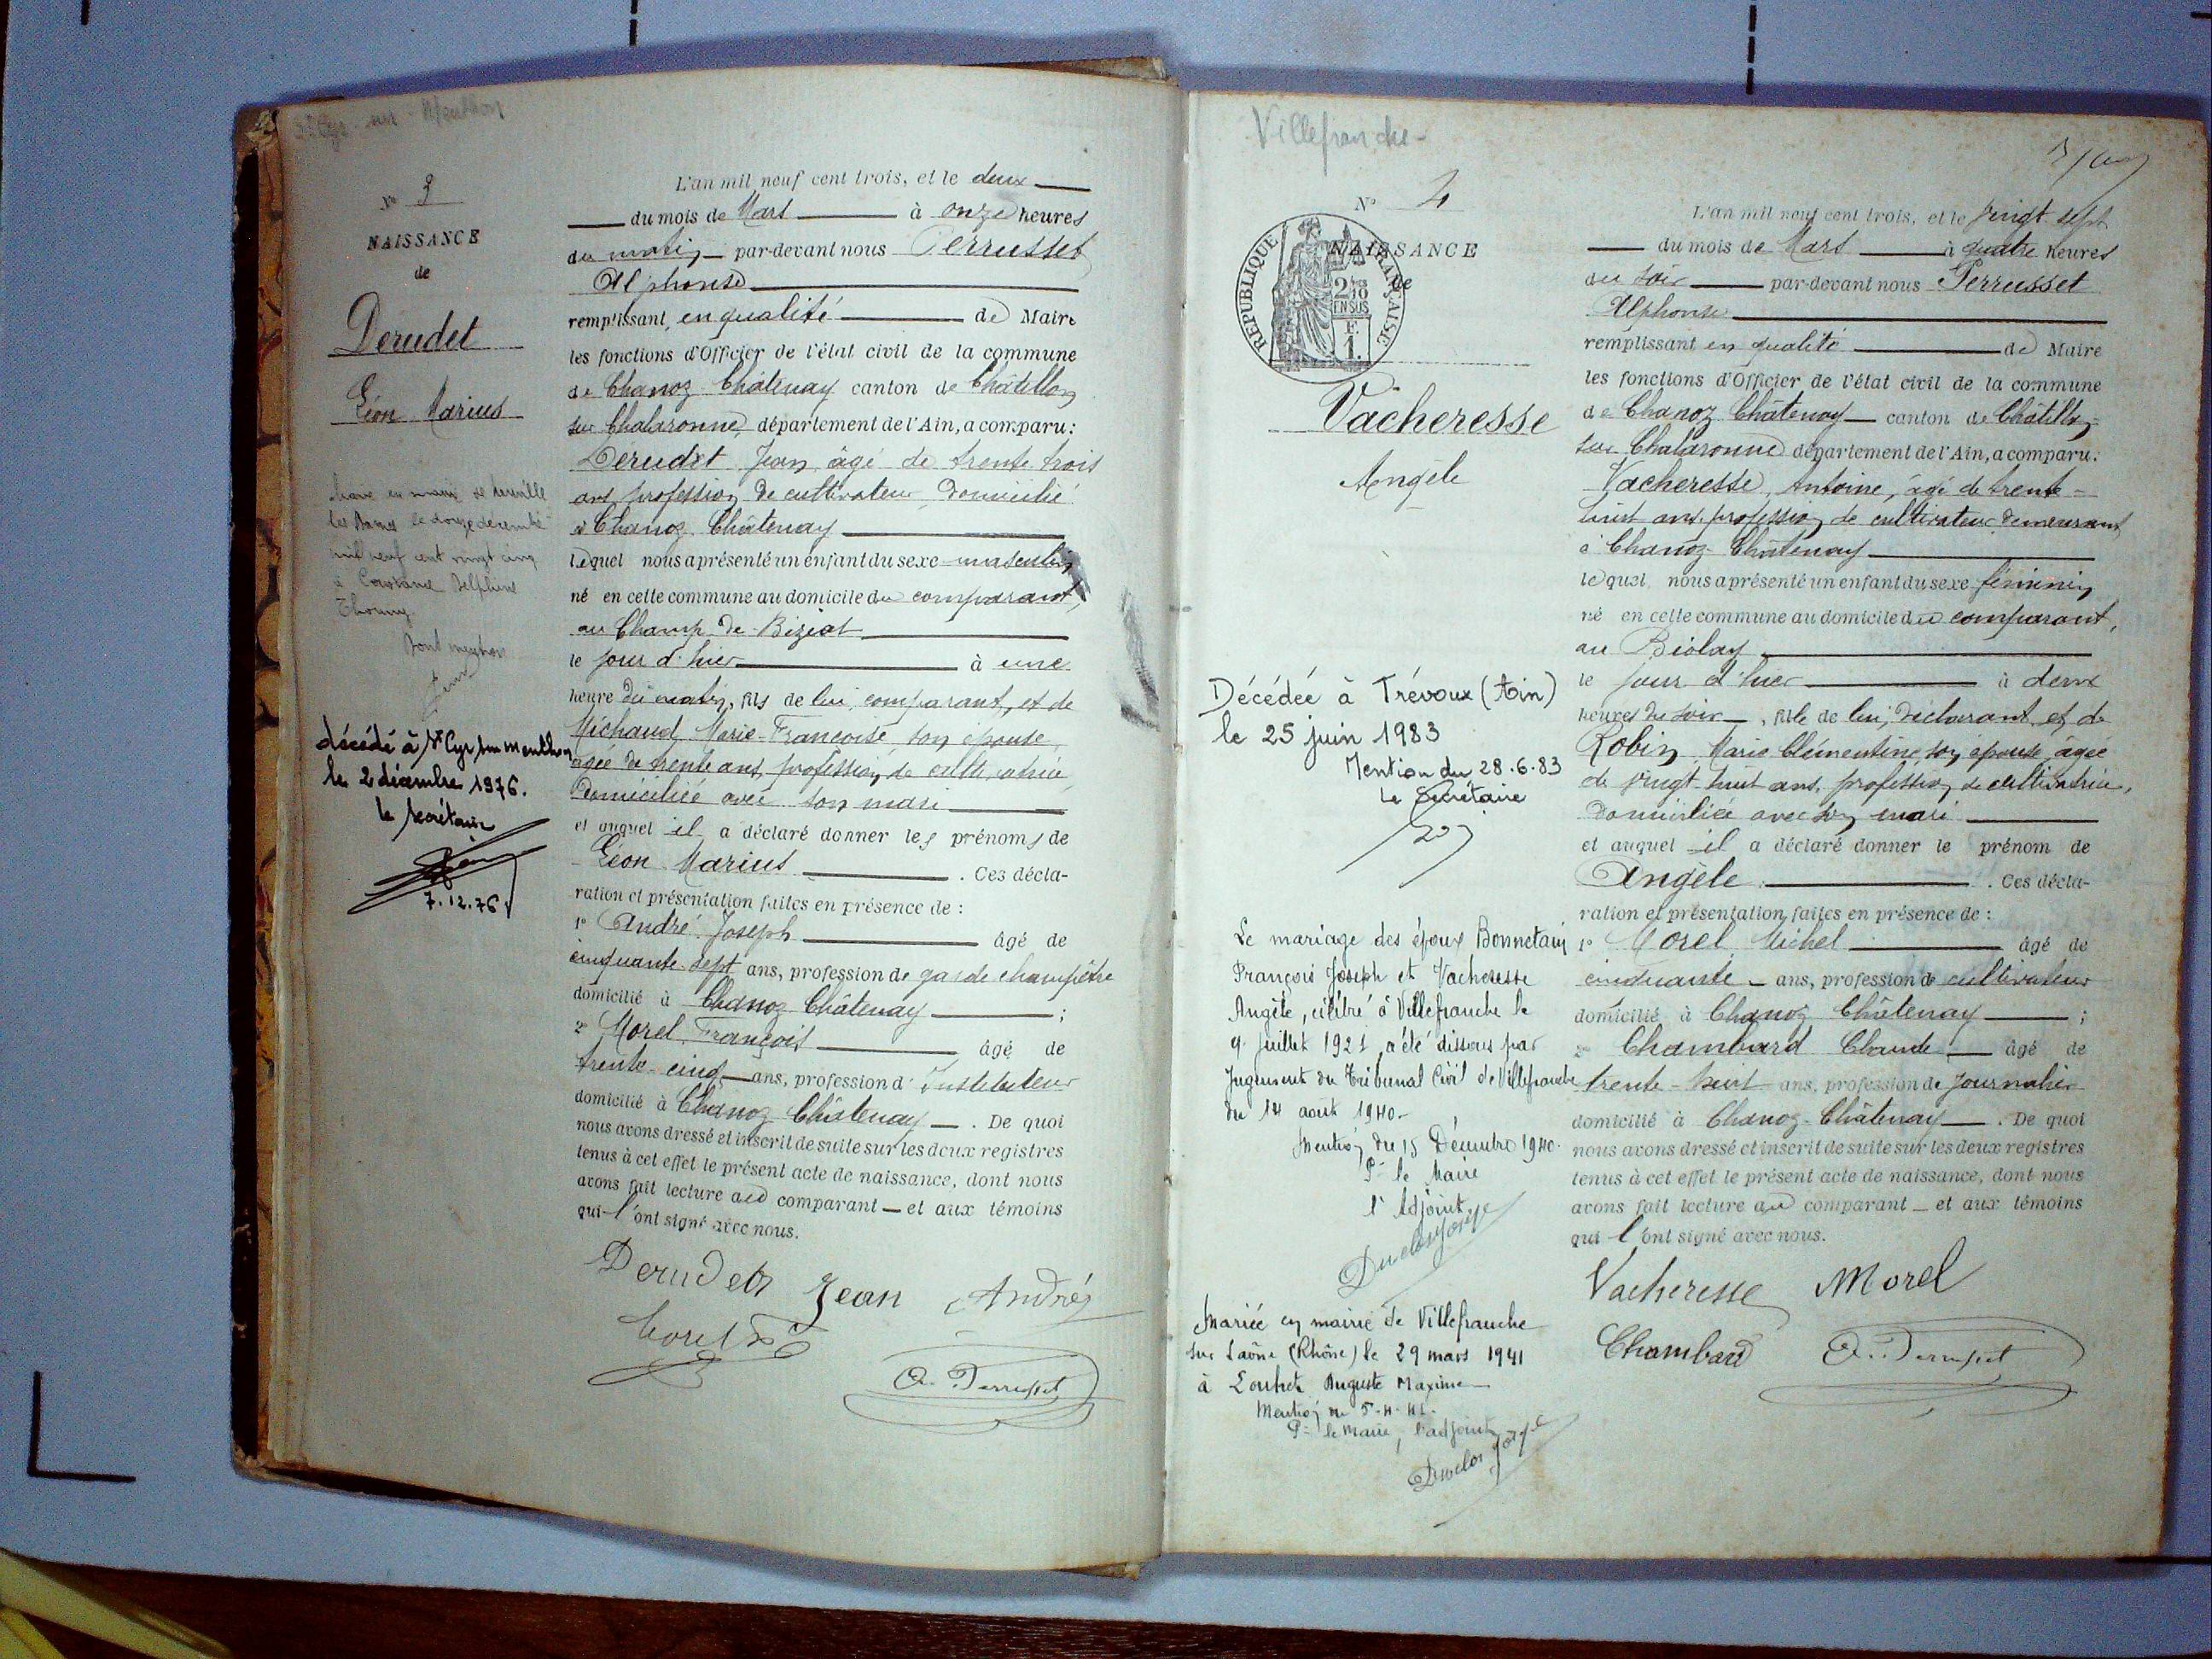 St Cyr sur Menthon
No 3
NAISSANCE
de
Derudet
Léon Marius
le douze décembre
mil neuf cent vingt cinq
à Constance Delphine
Thonny
Dont mention
décédé à St Cyr sur Menthon
le 2 décembre 1976.
le secrétaire
7.12.76
L'an mil neuf cent trois, et le deux
du mois de Mars à onze heures
du matin par-devant nous Perrusset
Alphonse
remplissant en qualité de Maire
les fonctions d'Officier de l'état civil de la commune
de Chanoz Châtenay canton de Châtillon
sur Chalaronne, département de l'Ain, a comparu:
Derudet Jean, âgé de trente trois
ans, profession de cultivateur, domicilié
à Chanoz Châtenay
lequel nous a présenté un enfant du sexe masculin
né en cette commune au domicile du comparant,
au Champ de Biziat
le jour d'hier à une
heure du matin, fils de lui, comparant, et de
Michaud, Marie-Françoise, son épouse,
agée de trente ans, profession de cultivatrice,
domiciliée avec son mari
et auquel il a déclaré donner les prénoms de
Léon Marius . Ces décla-
ration et présentation faites en présence de :
1° André Joseph âgé de
cinquante-sept ans, profession de garde champêtre
domicilié à Chanoz Châtenay ;
2° Morel François âgé de
trente-cinq ans, profession d'Instituteur
domicilié à Chanoz Châtenay . De quoi
nous avons dressé et inscrit de suite sur les deux registres
tenus à cet effet le présent acte de naissance, dont nous
avons fait lecture au comparant et aux témoins
qui l'ont signé avec nous.
Derudet Jean André
Morel
A. Perrusset
Villefranche
No 4
NAISSANCE
de
RÉPUBLIQUE FRANÇAISE
2/10
EN SUS
F.
1.
Vacheresse
Angèle
Décédée à Trévoux (Ain)
le 25 juin 1983
Mention du 28.6.83
Le Secrétaire
Le mariage des époux Bonnetain
François Joseph et Vacheresse
Angèle, célébré à Villefranche le
9 juillet 1921 a été dissous par
Jugement du Tribunal Civil de Villefranche
du 14 août 1940.
Mention du 15 Décembre 1940.
Pr le Maire
l'Adjoint
Mariée en mairie de Villefranche
sur Saône (Rhône) le 29 mars 1941
à Auguste Maxime
Mention du 5-4-41.
Pr le Maire, l'adjoint
L'an mil neuf cent trois, et le vingt-sept
du mois de Mars à quatre heures
du soir par-devant nous Perrusset
Alphonse
remplissant en qualité de Maire
les fonctions d'Officier de l'état civil de la commune
de Chanoz Châtenay canton de Châtillon-
sur Chalaronne département de l'Ain, a comparu:
Vacheresse, Antoine, âgé de trente-
huit ans, profession de cultivateur demeurant
à Chanoz-Châtenay
lequel nous a présenté un enfant du sexe féminin
né en cette commune au domicile du comparant,
au Biolay
le jour d'hier à deux
heures du soir, fille de lui, déclarant, et de
Robin, Marie Clémentine, son épouse, âgée
de vingt-huit ans, profession de cultivatrice,
domiciliée avec son mari
et auquel il a déclaré donner le prénom de
Angèle . Ces décla-
ration et présentation faites en présence de :
1° Morel Michel âgé de
cinquante ans, profession de cultivateur
domicilié à Chanoz Châtenay ;
2° Chambard Claude âgé de
trente-huit ans, profession de Journalier
domicilié à Chanoz-Châtenay . De quoi
nous avons dressé et inscrit de suite sur les deux registres
tenus à cet effet le présent acte de naissance, dont nous
avons fait lecture au comparant et aux témoins
qui l'ont signé avec nous.
Vacheresse Morel
Chambard A. Perrusset